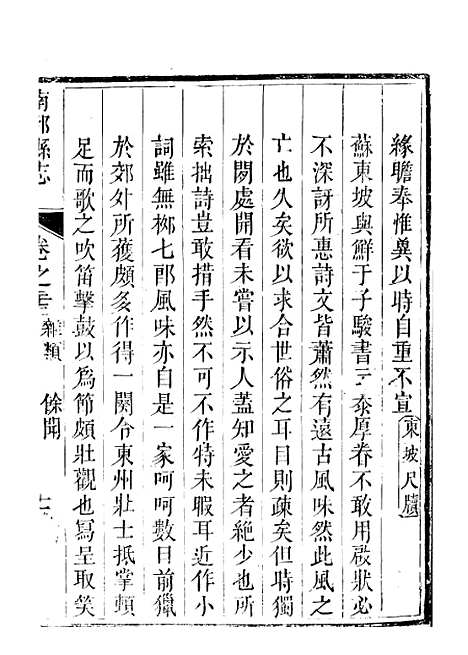 緣瞻奉惟冀以時自重不宣東坡尺牘
蘇東坡與鮮于子駿書云忝厚眷不敢用啟狀必
不深訝所惠詩文皆蕭然有遠古風味然此風之
亡也久矣欲以求合世俗之耳目則疎矣但時獨
於閒處開看未嘗以示人蓋知愛之者絶少也所
索拙詩豈敢措手然不可不作特未暇耳近作小
詞雖無桞七郎風味亦自是一家呵呵數日前獵
於郊外所獲頗多作得一闋令東州壯士抵掌頓
足而歌之吹笛擊鼓以爲節頗壯觀也寫呈取笑
南部縣志 卷之 雜類 餘聞